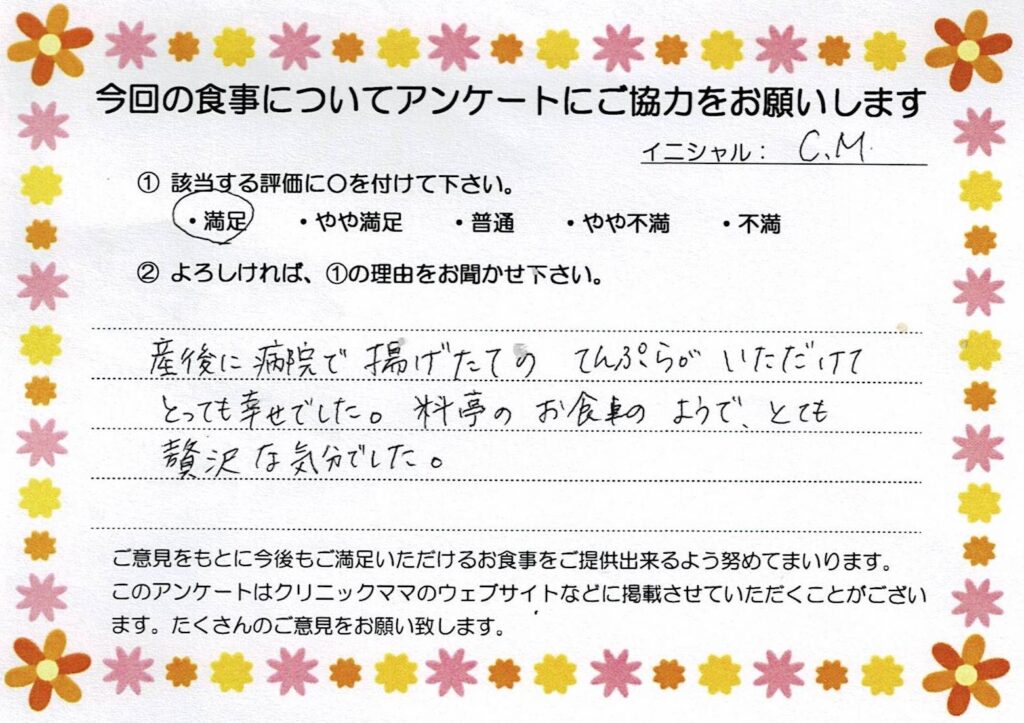 今回の食事についてアンケートにご協力をお願いします
イニシャル： C.M.
① 該当する評価に○を付けて下さい。
・満足 ・やや満足 ・普通 ・やや不満 ・不満
② よろしければ、①の理由をお聞かせ下さい。
産後に病院で揚げたてのてんぷらがいただけて
とっても幸せでした。料亭のお食事のようで、とても
贅沢な気分でした。
ご意見をもとに今後もご満足いただけるお食事をご提供出来るよう努めてまいります。
このアンケートはクリニックママのウェブサイトなどに掲載させていただくことがござい
ます。たくさんのご意見をお願い致します。